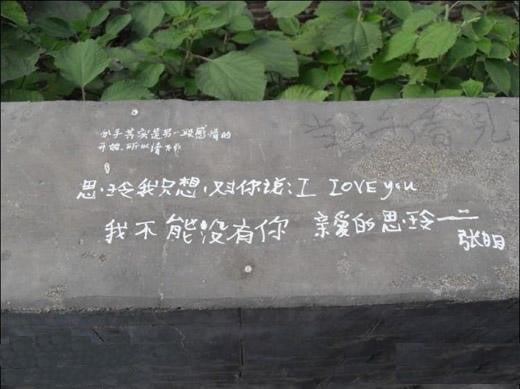 分手其实是另一段感情的
开始,所以请不
思玲我只想,对你说:I LOVE you
我不能没有你 亲爱的思玲——
张明